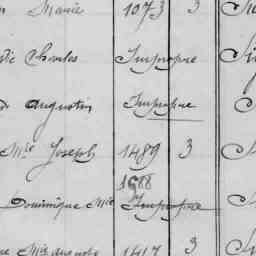 Marie 1073 3
Charles Impropre
Augustin Impropre
Mie Joseph 1489 3
1988
Dominique Mie Impropre
Mie Auguste 1417 3